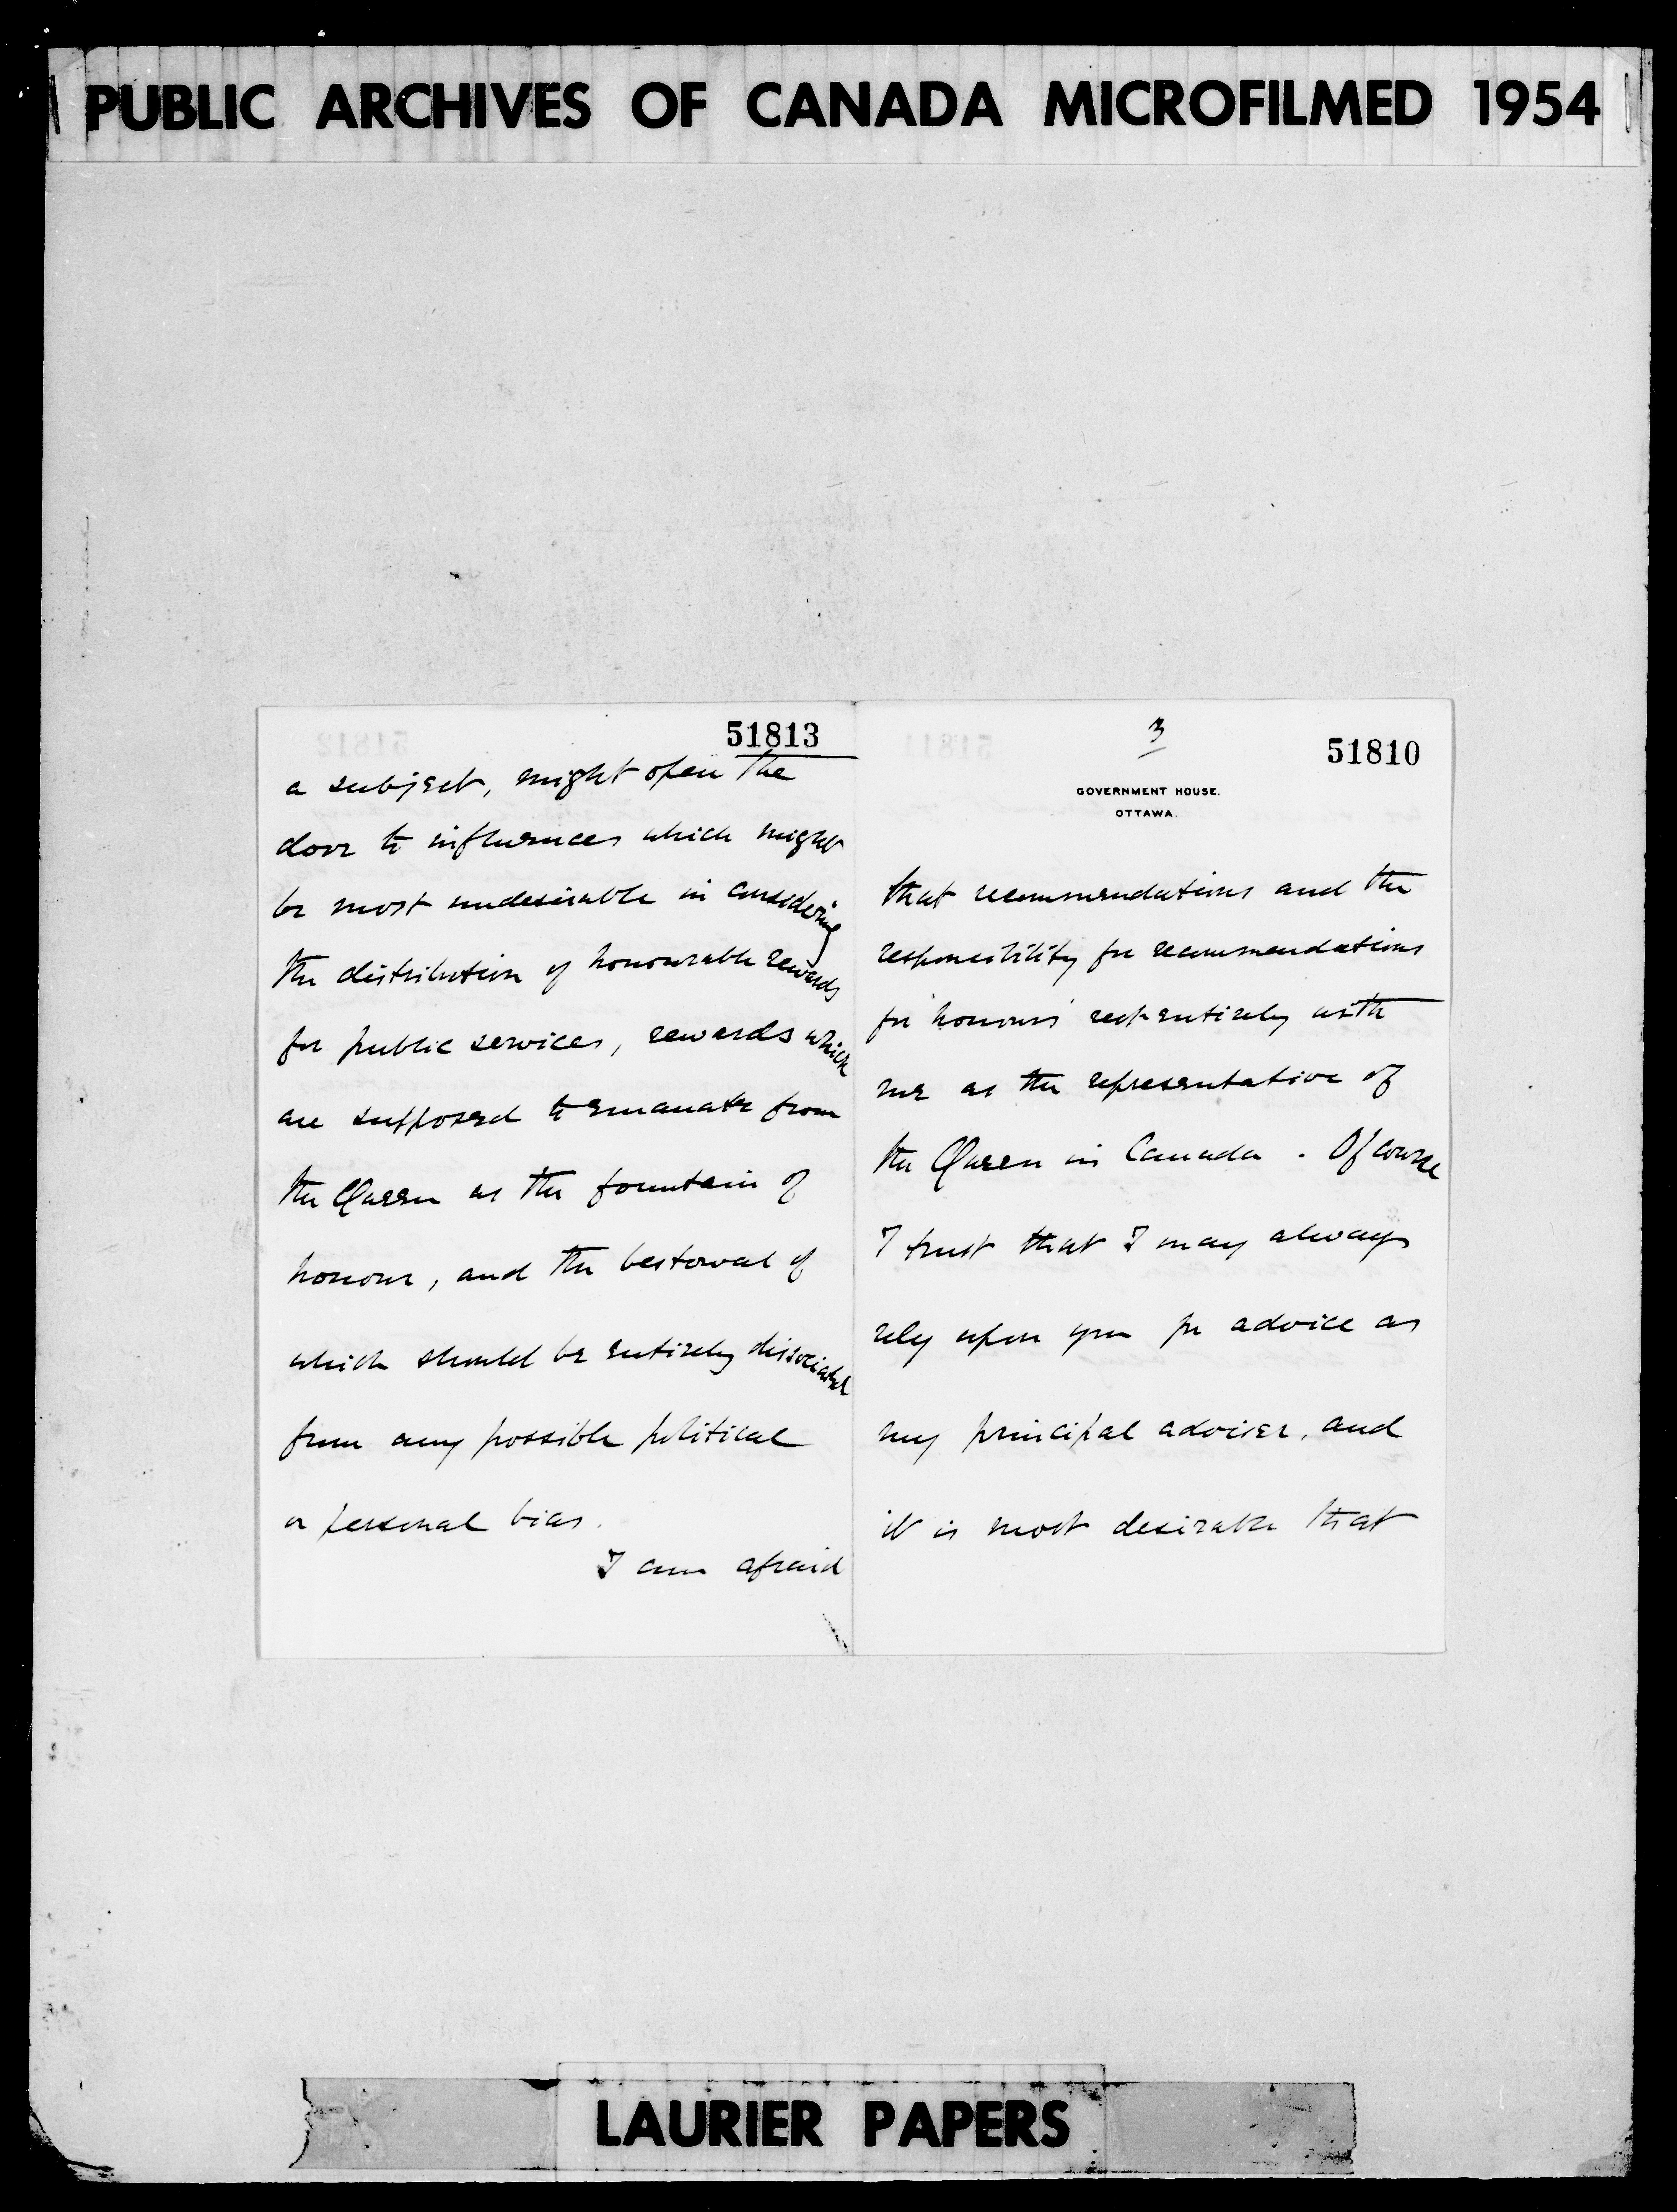 PUBLIC ARCHIVES OF CANADA MICROFILMED 1954
51813
a subject, might open the
door to influences which might
be most undesirable in considering
the distribution of honourable rewards
for public services, rewards which
are supposed to emanate from
the Queen as the fountain of
honour, and the bestowal of
which should be entirely dissociated
from any possible political
or personal bias.
I am afraid
3
51810
GOVERNMENT HOUSE.
OTTAWA.
that recommendations and the
responsibility for recommendations
for honours rest entirely with
me as the representative of
the Queen in Canada. Of course
I trust that I may always
rely upon you for advice as
my principal adviser, and
it is most desirable that
LAURIER PAPERS